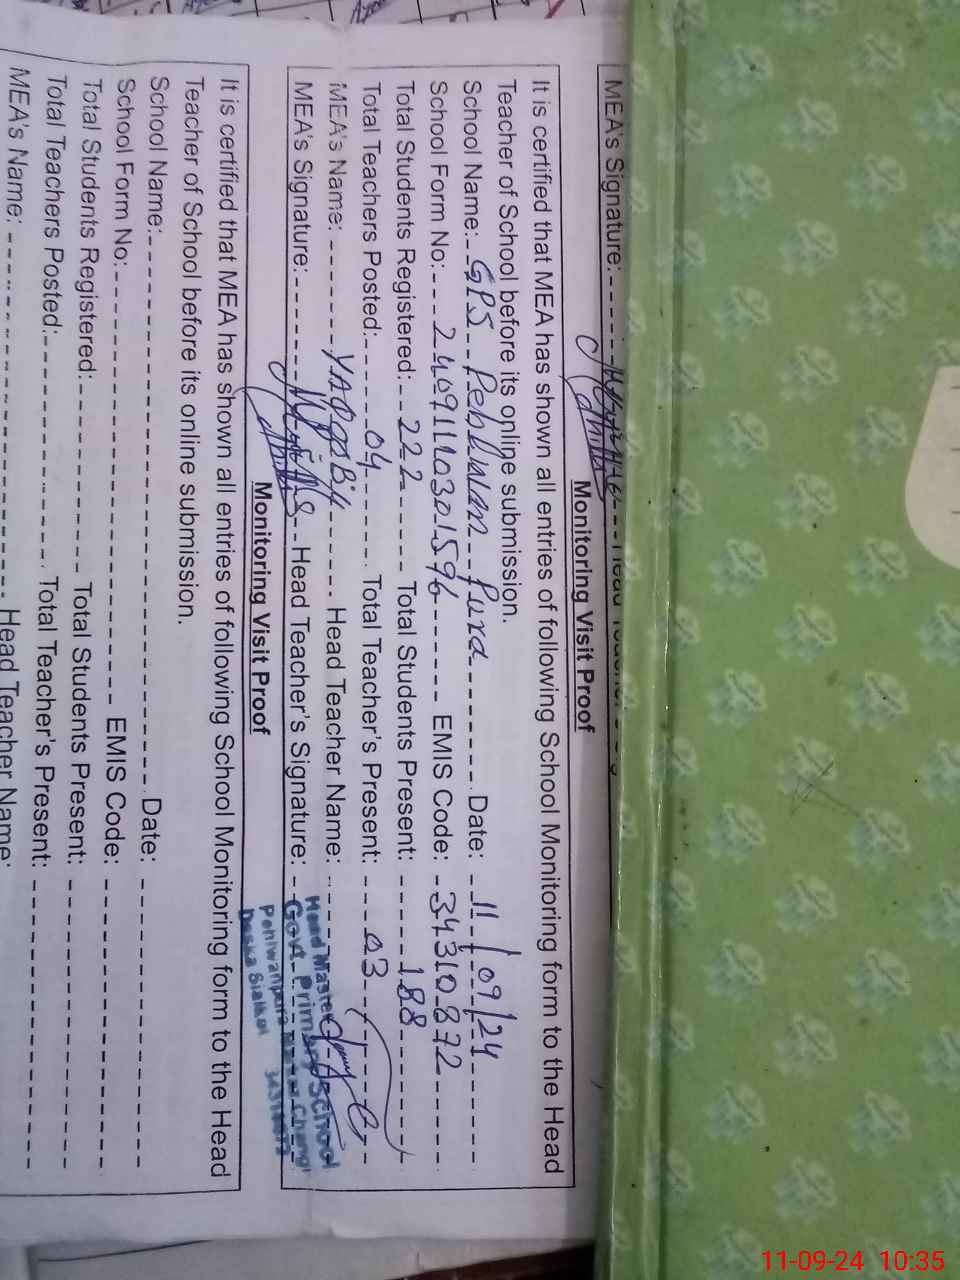 MEA's Signature:
Monitoring Visit Proof
It is certified that MEA has shown all entries of following School Monitoring form to the Head
Teacher of School before its online submission.
School Name: GPS Pehlwan Pura Date: 11/09/24
School Form No: EMIS Code: 34310872
Total Students Registered: 222 Total Students Present: 188
Total Teachers Posted: 04 Total Teacher's Present: 03
MEA's Name: Head Teacher Name:
MEA's Signature: Head Teacher's Signature:
Head Master
Govt. Primary School
Pehlwanpura
Daska Sialkot 34310872
Monitoring Visit Proof
It is certified that MEA has shown all entries of following School Monitoring form to the Head
Teacher of School before its online submission.
School Name: Date:
School Form No: EMIS Code:
Total Students Registered: Total Students Present:
Total Teachers Posted: Total Teacher's Present:
MEA's Name: Head Teacher Name:
11-09-24 10:35